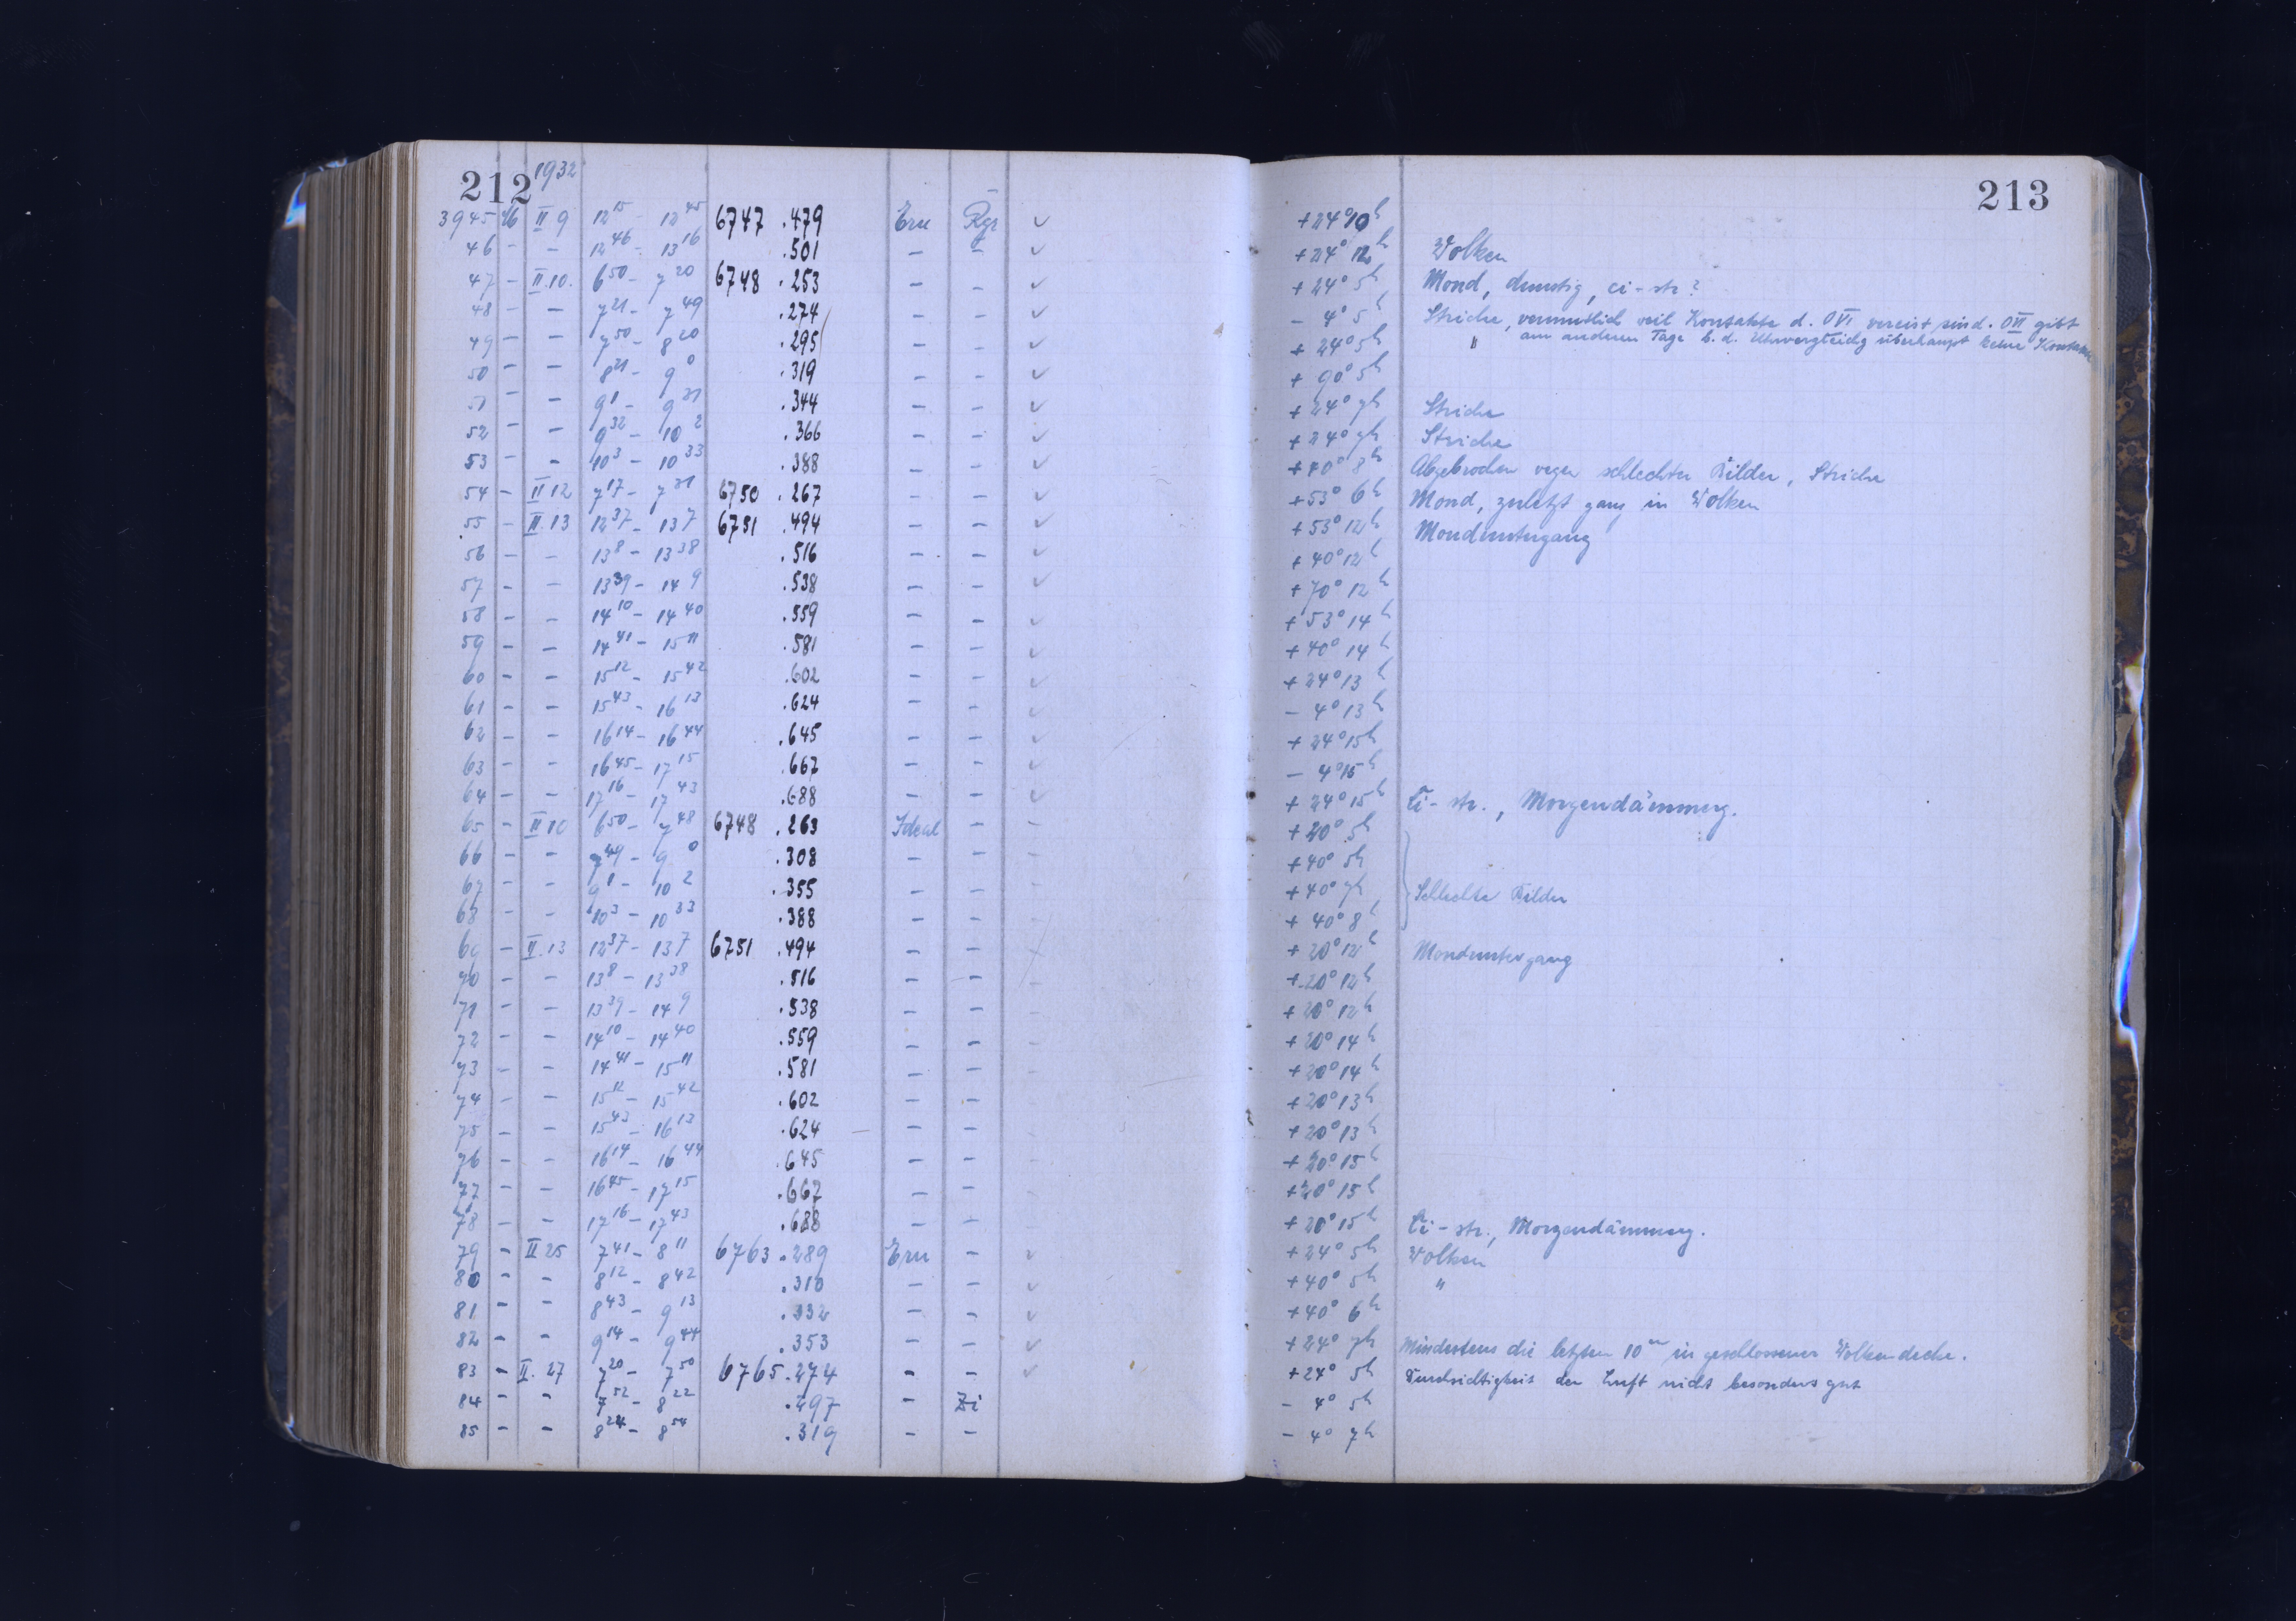 212 1932
3945 16 II 9 12 15 - 12 45 6747 .479 Ern Rgr ✓ +24° 10h
46 - - 12 46 - 13 16 .501 - - ✓ +24° 12h Wolken
47 - II.10. 6 50 - 7 20 6748 .253 - - ✓ +24° 5h Mond, dunstig, ci-str?
48 - - 7 21 - 7 49 .274 - - ✓ - 4° 5h Striche, vermutlich weil Kontakte d. OVI vereist sind. OVII gibt
49 - - 7 50 - 8 20 .295 - - ✓ +24° 5h " am anderen Tage b. d. Uhrvergleichg überhaupt keine Kontakte
50 - - 8 21 - 9 0 .319 - - ✓ +90° 5h
51 - - 9 1 - 9 31 .344 - - ✓ +24° 7h Striche
52 - - 9 32 - 10 2 .366 - - ✓ +24° 7h Striche
53 - - 10 3 - 10 33 .388 - - ✓ +40° 8h Abgebrochen wegen schlechter Bilder, Striche
54 - II 12 7 17 - 7 31 6750 .267 - - ✓ +53° 6h Mond, zuletzt ganz in Wolken
55 - II.13 12 37 - 13 7 6751 .494 - - ✓ +53° 12h Monduntergang
56 - - 13 8 - 13 38 .516 - - ✓ +40° 12h
57 - - 13 39 - 14 9 .538 - - ✓ +70° 12h
58 - - 14 10 - 14 40 .559 - - ✓ +53° 14h
59 - - 14 41 - 15 11 .581 - - ✓ +40° 14h
60 - - 15 12 - 15 42 .602 - - ✓ +24° 13h
61 - - 15 43 - 16 13 .624 - - ✓ - 4° 13h
62 - - 16 14 - 16 44 .645 - - ✓ +24° 15h
63 - - 16 45 - 17 15 .667 - - ✓ - 4° 15h
64 - - 17 16 - 17 43 .688 - - ✓ +24° 15h Ci-str., Morgendämmerg.
65 - II 10 6 50 - 7 48 6748 .263 Ideal - - +20° 5h
66 - - 7 49 - 9 0 .308 - - - +40° 5h
67 - - 9 1 - 10 2 .355 - - - +40° 7h Schlechte Bilder
68 - - 10 3 - 10 33 .388 - - - +40° 8h
69 - II.13 12 37 - 13 7 6751 .494 - - +20° 12h Monduntergang
70 - - 13 8 - 13 38 .516 - - +20° 12h
71 - - 13 39 - 14 9 .538 - - - +20° 12h
72 - - 14 10 - 14 40 .559 - - - +20° 14h
73 - - 14 41 - 15 11 .581 - - - +20° 14h
74 - - 15 12 - 15 42 .602 - - +20° 13h
75 - - 15 43 - 16 13 .624 - - +20° 13h
76 - - 16 14 - 16 44 .645 - - +20° 15h
77 - - 16 45 - 17 15 .667 - - +20° 15h
78 - - 17 16 - 17 43 .688 - - +20° 15h Ci-str., Morgendämmerg.
79 - II 25 7 41 - 8 11 6763 .289 Ern - ✓ +24° 5h Wolken
80 - - 8 12 - 8 42 .310 - - ✓ +40° 5h "
81 - - 8 43 - 9 13 .332 - - ✓ +40° 6h
82 - - 9 14 - 9 44 .353 - - ✓ +24° 7h Mindestens die letzten 10m in geschlossener Wolkendecke.
83 - II. 27 7 20 - 7 50 6765 .274 - - ✓ +24° 5h Durchsichtigkeit der Luft nicht besonders gut
84 - - 7 52 - 8 22 .297 - Zi - 4° 5h
85 - - 8 24 - 8 54 .319 - - - 4° 7h
213